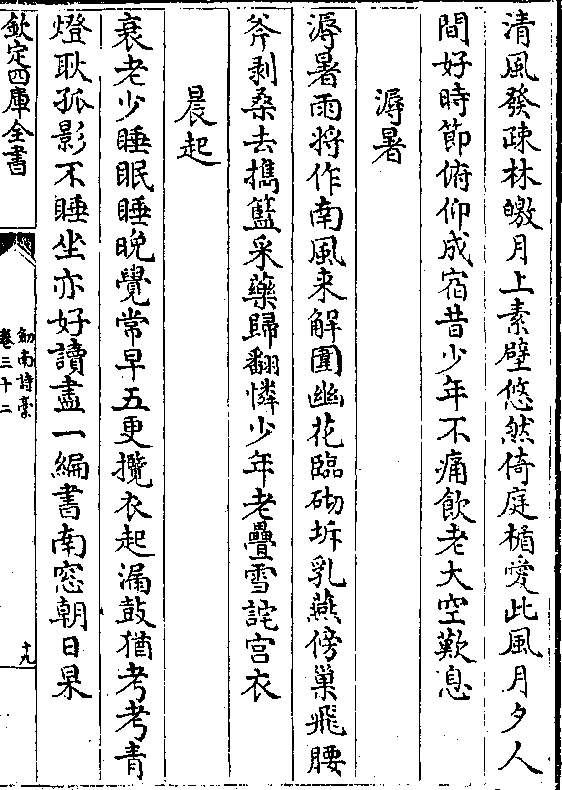 清風發疎林皦月上素壁悠然倚庭楯愛此風月夕人
間好時節俯仰成宿昔少年不痛飲老大空歎息
溽暑
溽暑雨將作南風来解圍幽花臨砌坼乳燕傍巢飛腰
斧剥桑去擕籃采藥歸翻憐少年老疊雪詫宫衣
晨起
衰老少睡眠睡晚覺常早五更攬衣起漏鼓猶考考青
燈耿孤影不睡坐亦好讀盡一編書南窓朝日杲
欽定四庫全書
劒南詩稾
卷三十二
十九